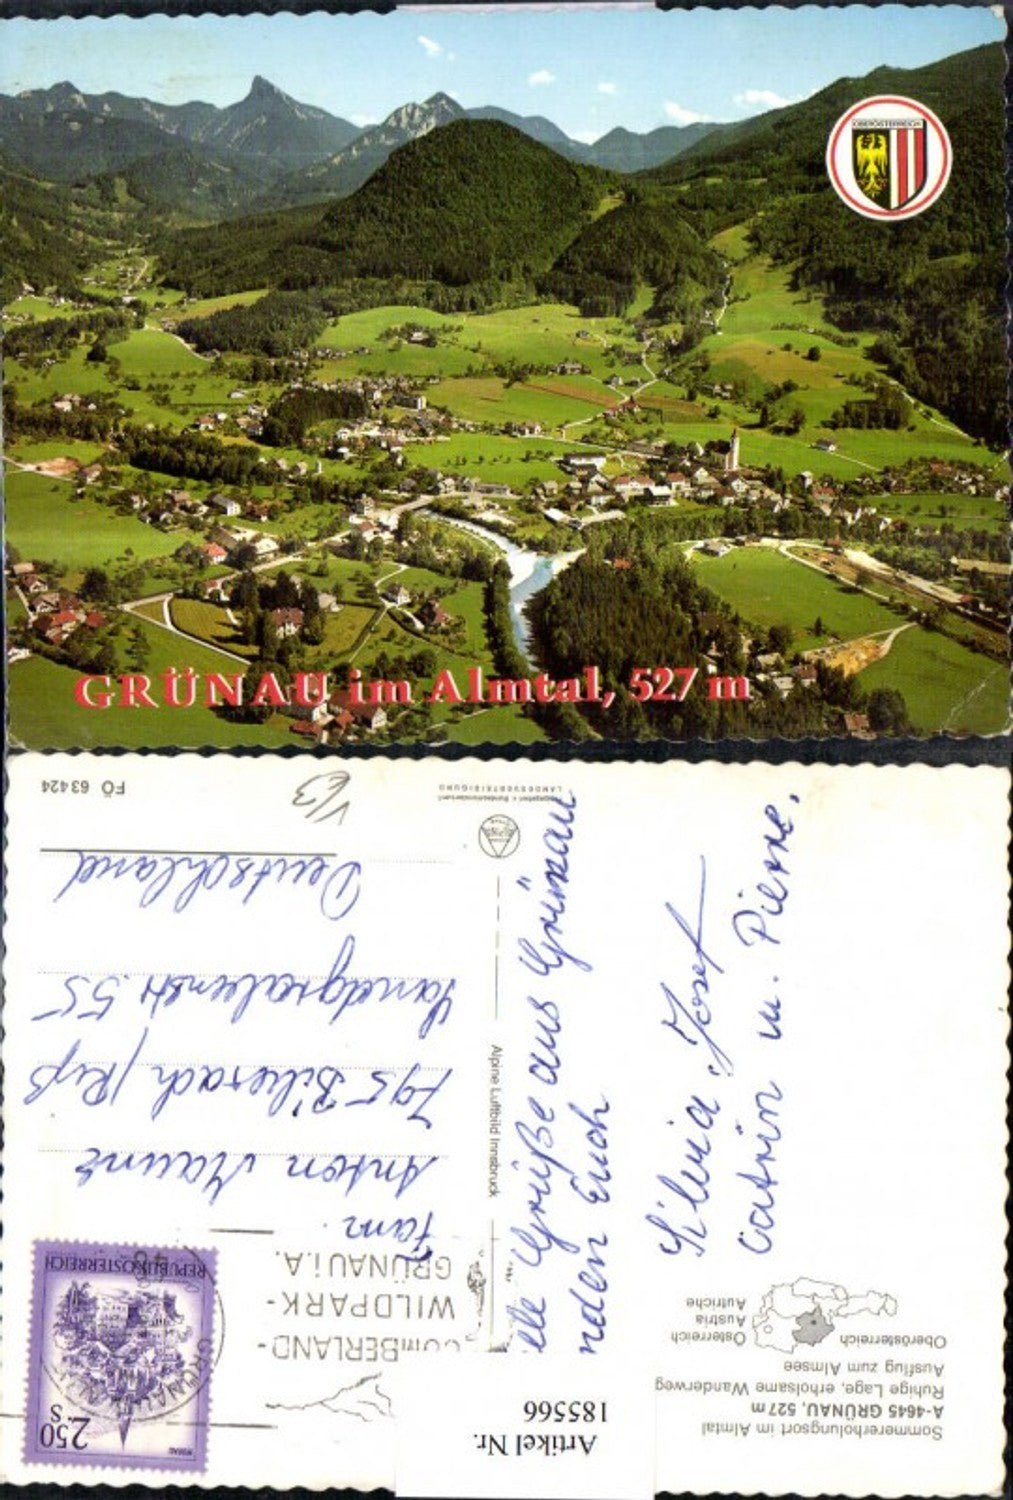 OBERÖSTERREICH
GRÜNAU im Almtal, 527 m
Sommererholungsort im Almtal
A-4645 GRÜNAU, 527 m
Ruhige Lage, erholsame Wanderweg
Ausflug zum Almsee
Oberösterreich
Österreich
Austria
Autriche
Artikel Nr.
185566
2.50
S
REPUBLIK ÖSTERREICH
GRÜNAU
CUMBERLAND-
WILDPARK-
GRÜNAU i.A.
Fam.
Anton
795 Biberach / Riß
55
Deutschland
Alpine Luftbild Innsbruck
LANDESVERTEIDIGUNG
FÖ 63424
V/3
Grüße aus Grünau
Euch
Silvia, Josef
Catrin u. Pierre.